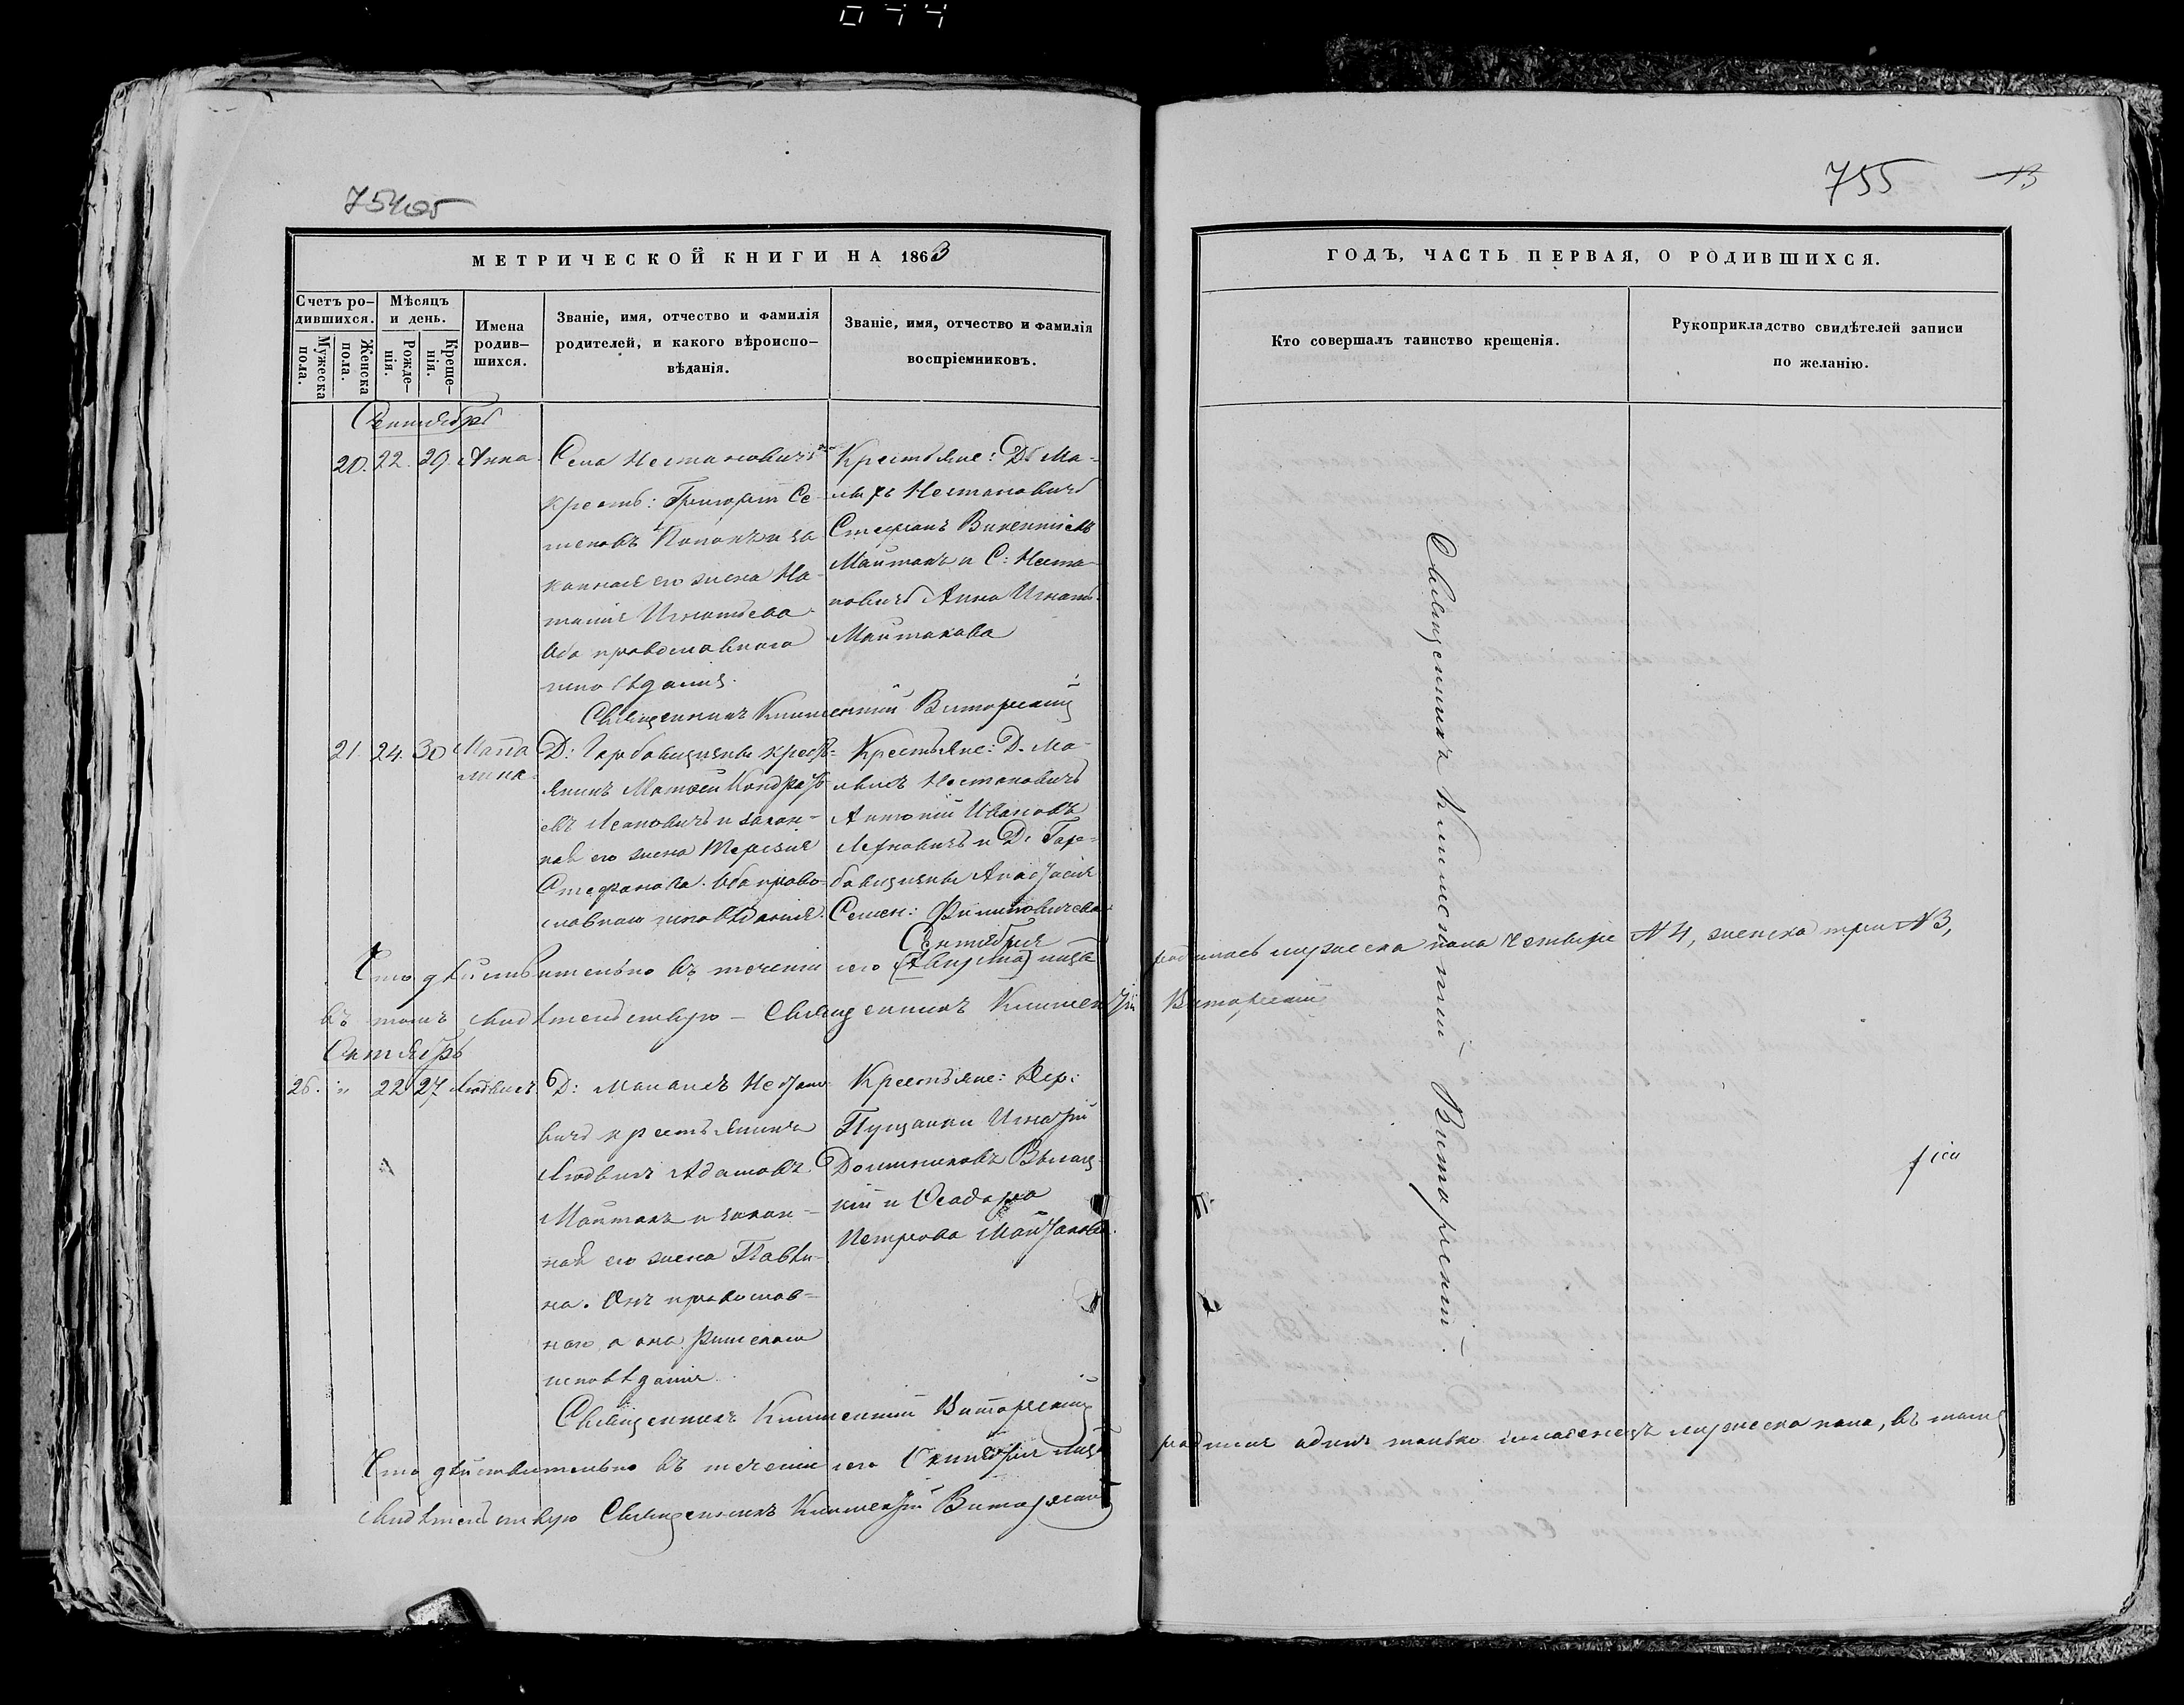 044
754об
755
13
МЕТРИЧЕСКОЙ КНИГИ НА 1863
ГОДЪ, ЧАСТЬ ПЕРВАЯ, О РОДИВШИХСЯ.
Счетъ ро-
дившихся.
Мужеска пола.
Женска пола.
Мѣсяцъ
и день.
Рожде-
нія.
Креще-
нія.
Имена
родив-
шихся.
Званіе, имя, отчество и фамилія
родителей, и какого вѣроиспо-
вѣданія.
Званіе, имя, отчество и фамилія
воспріемниковъ.
Кто совершалъ таинство крещенія.
Рукоприкладство свидѣтелей записи
по желанію.
Сентябрь
20. 22. 29. Анна
Села Нестановичъ
крест: Григорій Се-
меновъ и за
конная его жена На-
талія Игнатьева
Оба православнаго
исповѣданія.
Крестьяне: Д. Ма-
Нестановичъ
Стефанъ Викентіевъ
Майтакъ и С: Неста-
новичъ Анна Игнать.
Майтакова
Священникъ Климентій Виторскій
21. 24. 30 Магда
лина
Д: крестъ-
янинъ Матѳей Кондратъ-
евъ и закон-
ная его жена Терезія
Стефанова. Оба право-
славнаго исповѣданія.
Крестьяне: Д. Ма-
Нестановичъ
Антоній Ивановъ
и Д: Гар-
бовщизны Анастасія
Семен: Филиповичева
Что дѣйствительно въ теченіи сего Сентября (Августа) мѣсяца родилось мужеска пола четыре N 4, женска три N 3,
въ томъ свидѣтельствую - Священникъ Климентій Виторскій
Октябрь
26. " 22 27 Людвигъ.
Д: Нестано-
вичъ крестьянинъ
Людвигъ Адамовъ
Майтакъ и закон-
ная его жена Павли-
на. Онъ православ-
наго, а она римскаго
исповѣданія.
Крестьяне: Дер:
Пущанки Игнатій
и Ѳеодора
Петрова Майтакова.
Священникъ Климентій Виторскій
Что дѣйствительно въ теченіи сего Октября мѣсяца родился одинъ только младенецъ мужеска пола, въ томъ
свидѣтельствую Священникъ Климентій Виторскій
Священникъ Климентій Виторскій.